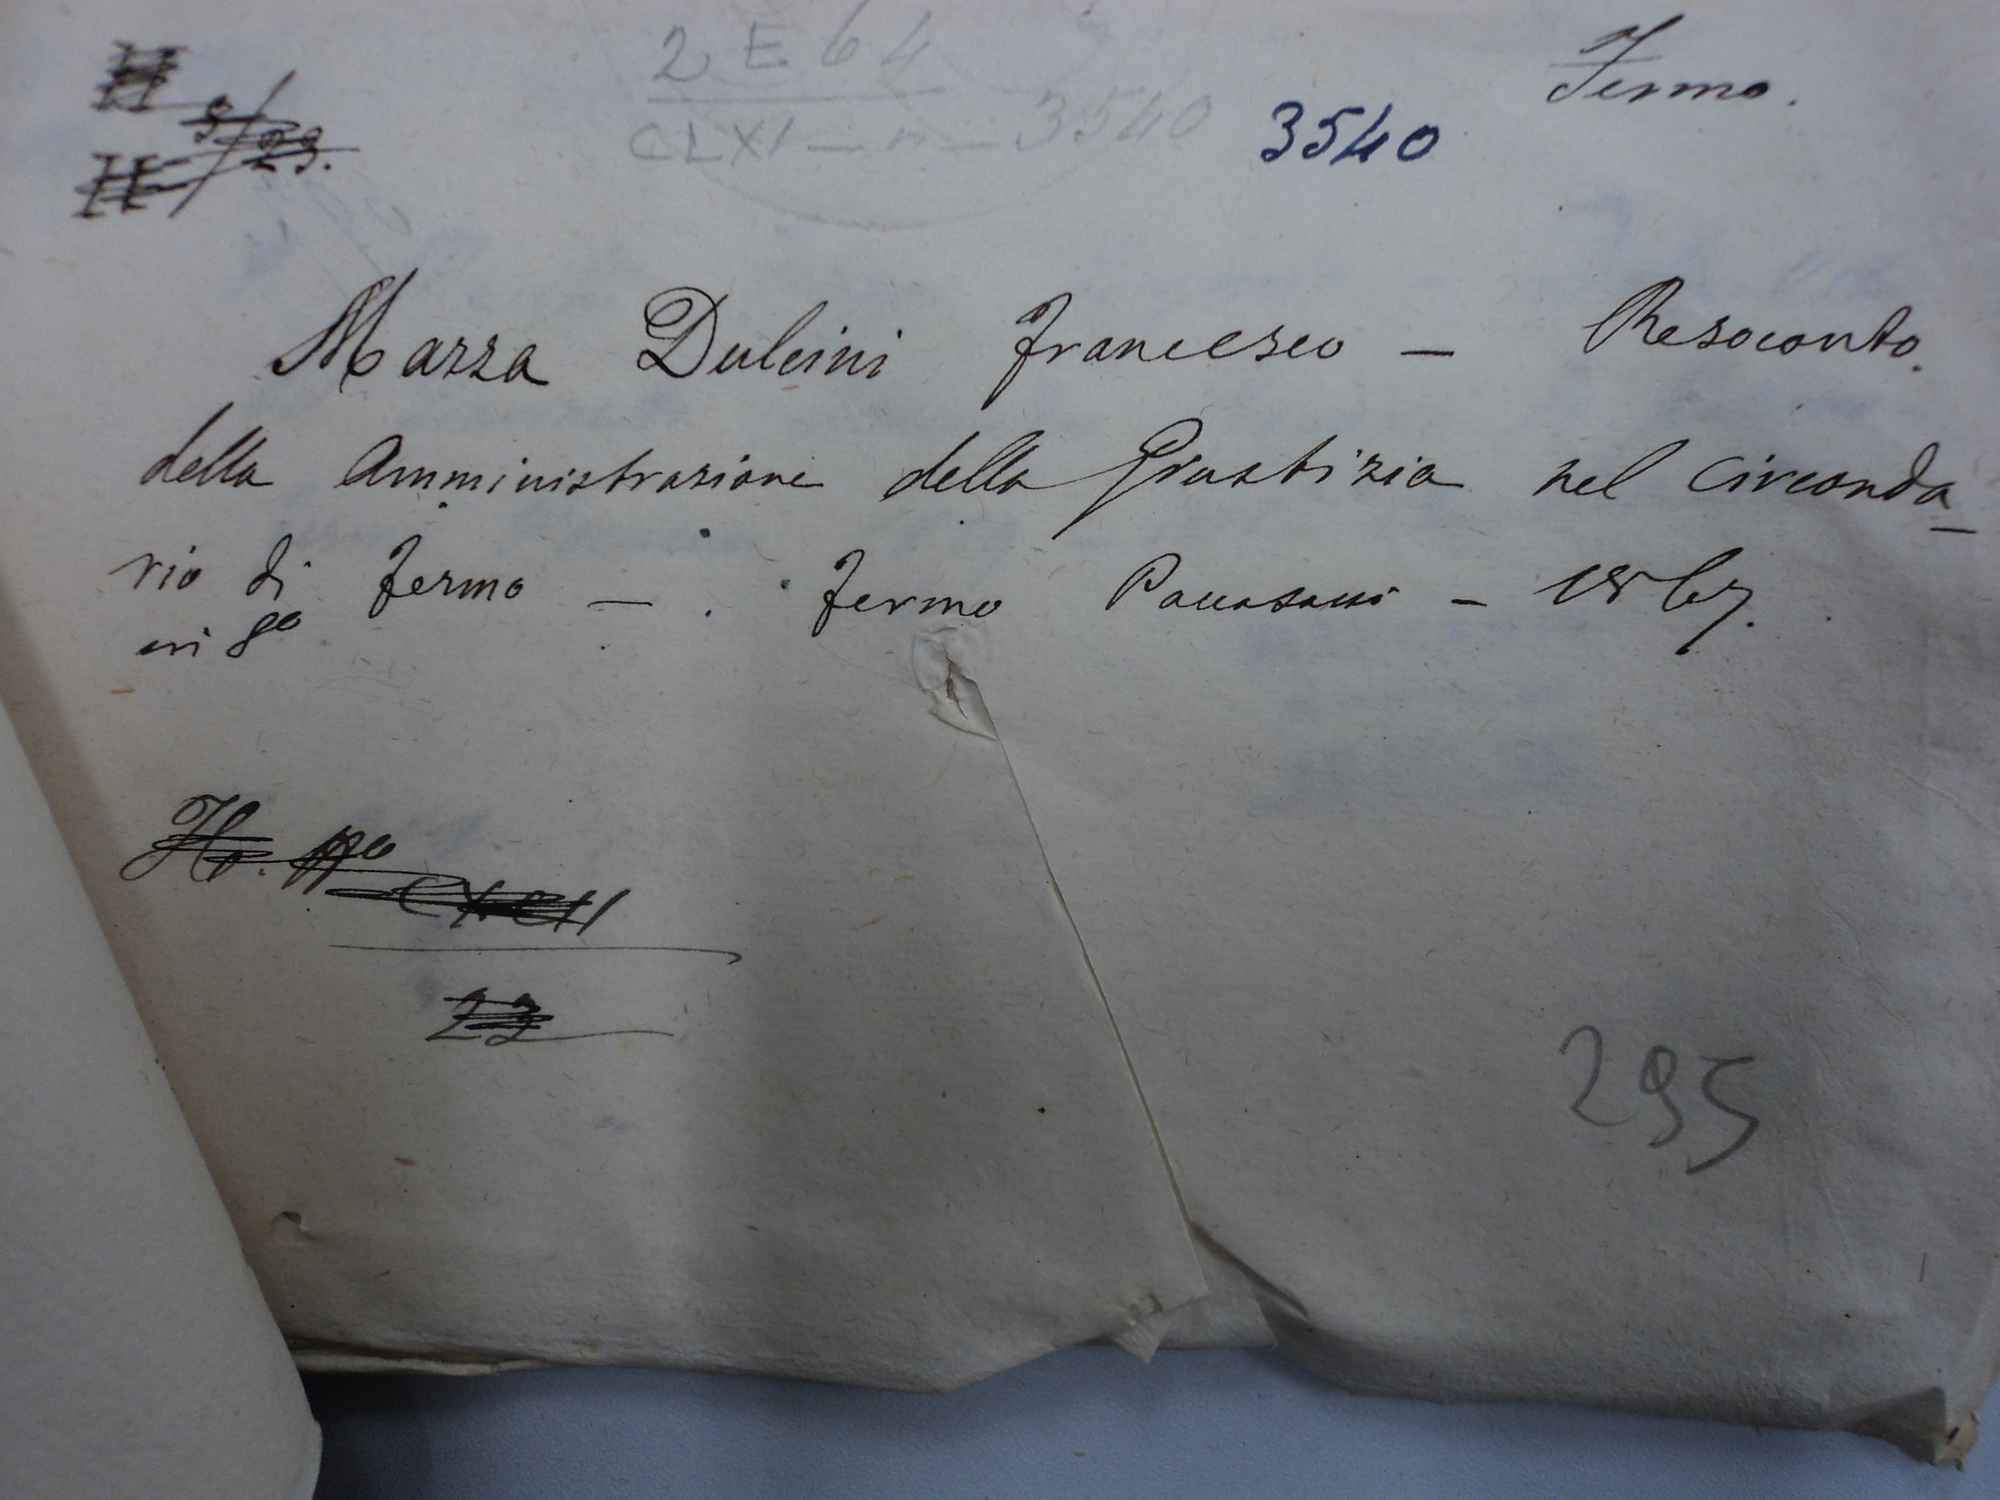 2 E 64
Fermo.
CLXI - n - 3540
3540
9/23.
Mazza Dulcini Francesco - Resoconto.
della Amministrazione della Giustizia nel Circonda-
rio di Fermo - . Fermo Paccasassi - 1867.
in 8º
CXCII
23
295